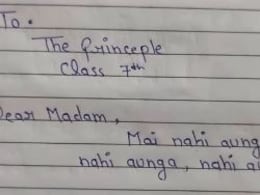 To.
The Princeple
Class 7th
Dear Madam,
Mai nahi aung
nahi aunga, nahi au